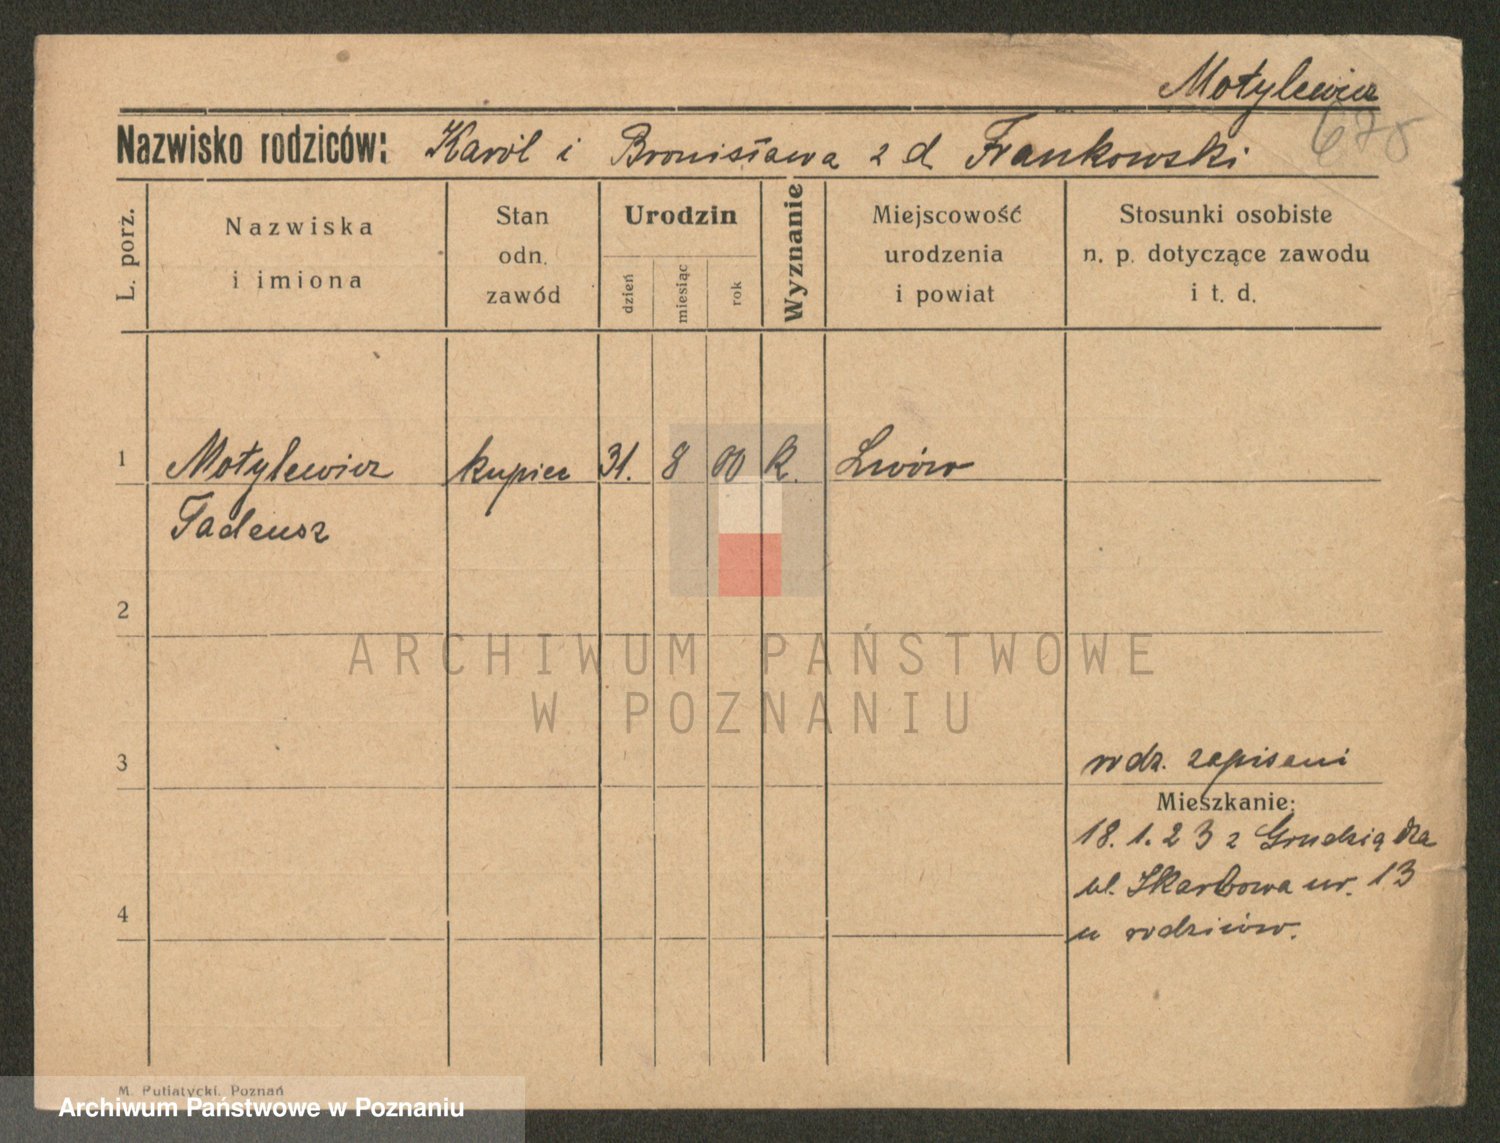 Motylewicz
Nazwisko rodziców: Karól i Bronisława z d Frankowski
678
L. porz.
Nazwiska
i imiona
Stan
odn.
zawód
Urodzin
dzień
miesiąc
rok
Wyznanie
Miejscowość
urodzenia
i powiat
Stosunki osobiste
n. p. dotyczące zawodu
i t. d.
1 Motylewicz kupiec 31. 8 00 k. Lwów
Tadeusz
2
ARCHIWUM PAŃSTWOWE
W POZNANIU
3
rodz. zapisani
Mieszkanie:
18. 1. 23 z Grudziądza
ul. Skarbowa nr. 13
4
u rodziców.
M. Putiatycki, Poznań
Archiwum Państwowe w Poznaniu